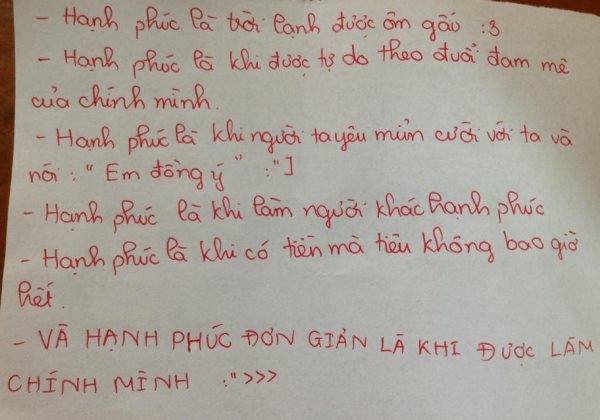 - Hạnh phúc là trời lạnh được ôm gấu :3
- Hạnh phúc là khi được tự do theo đuổi đam mê
của chính mình.
- Hạnh phúc là khi người ta yêu mủn cười với ta và
nói : " Em đồng ý " :"]
- Hạnh phúc là khi làm người khác hạnh phúc
- Hạnh phúc là khi có tiền mà tiêu không bao giờ
hết.
- VÀ HẠNH PHÚC ĐƠN GIẢN LÀ KHI ĐƯỢC LÀM
CHÍNH MÌNH :">>>